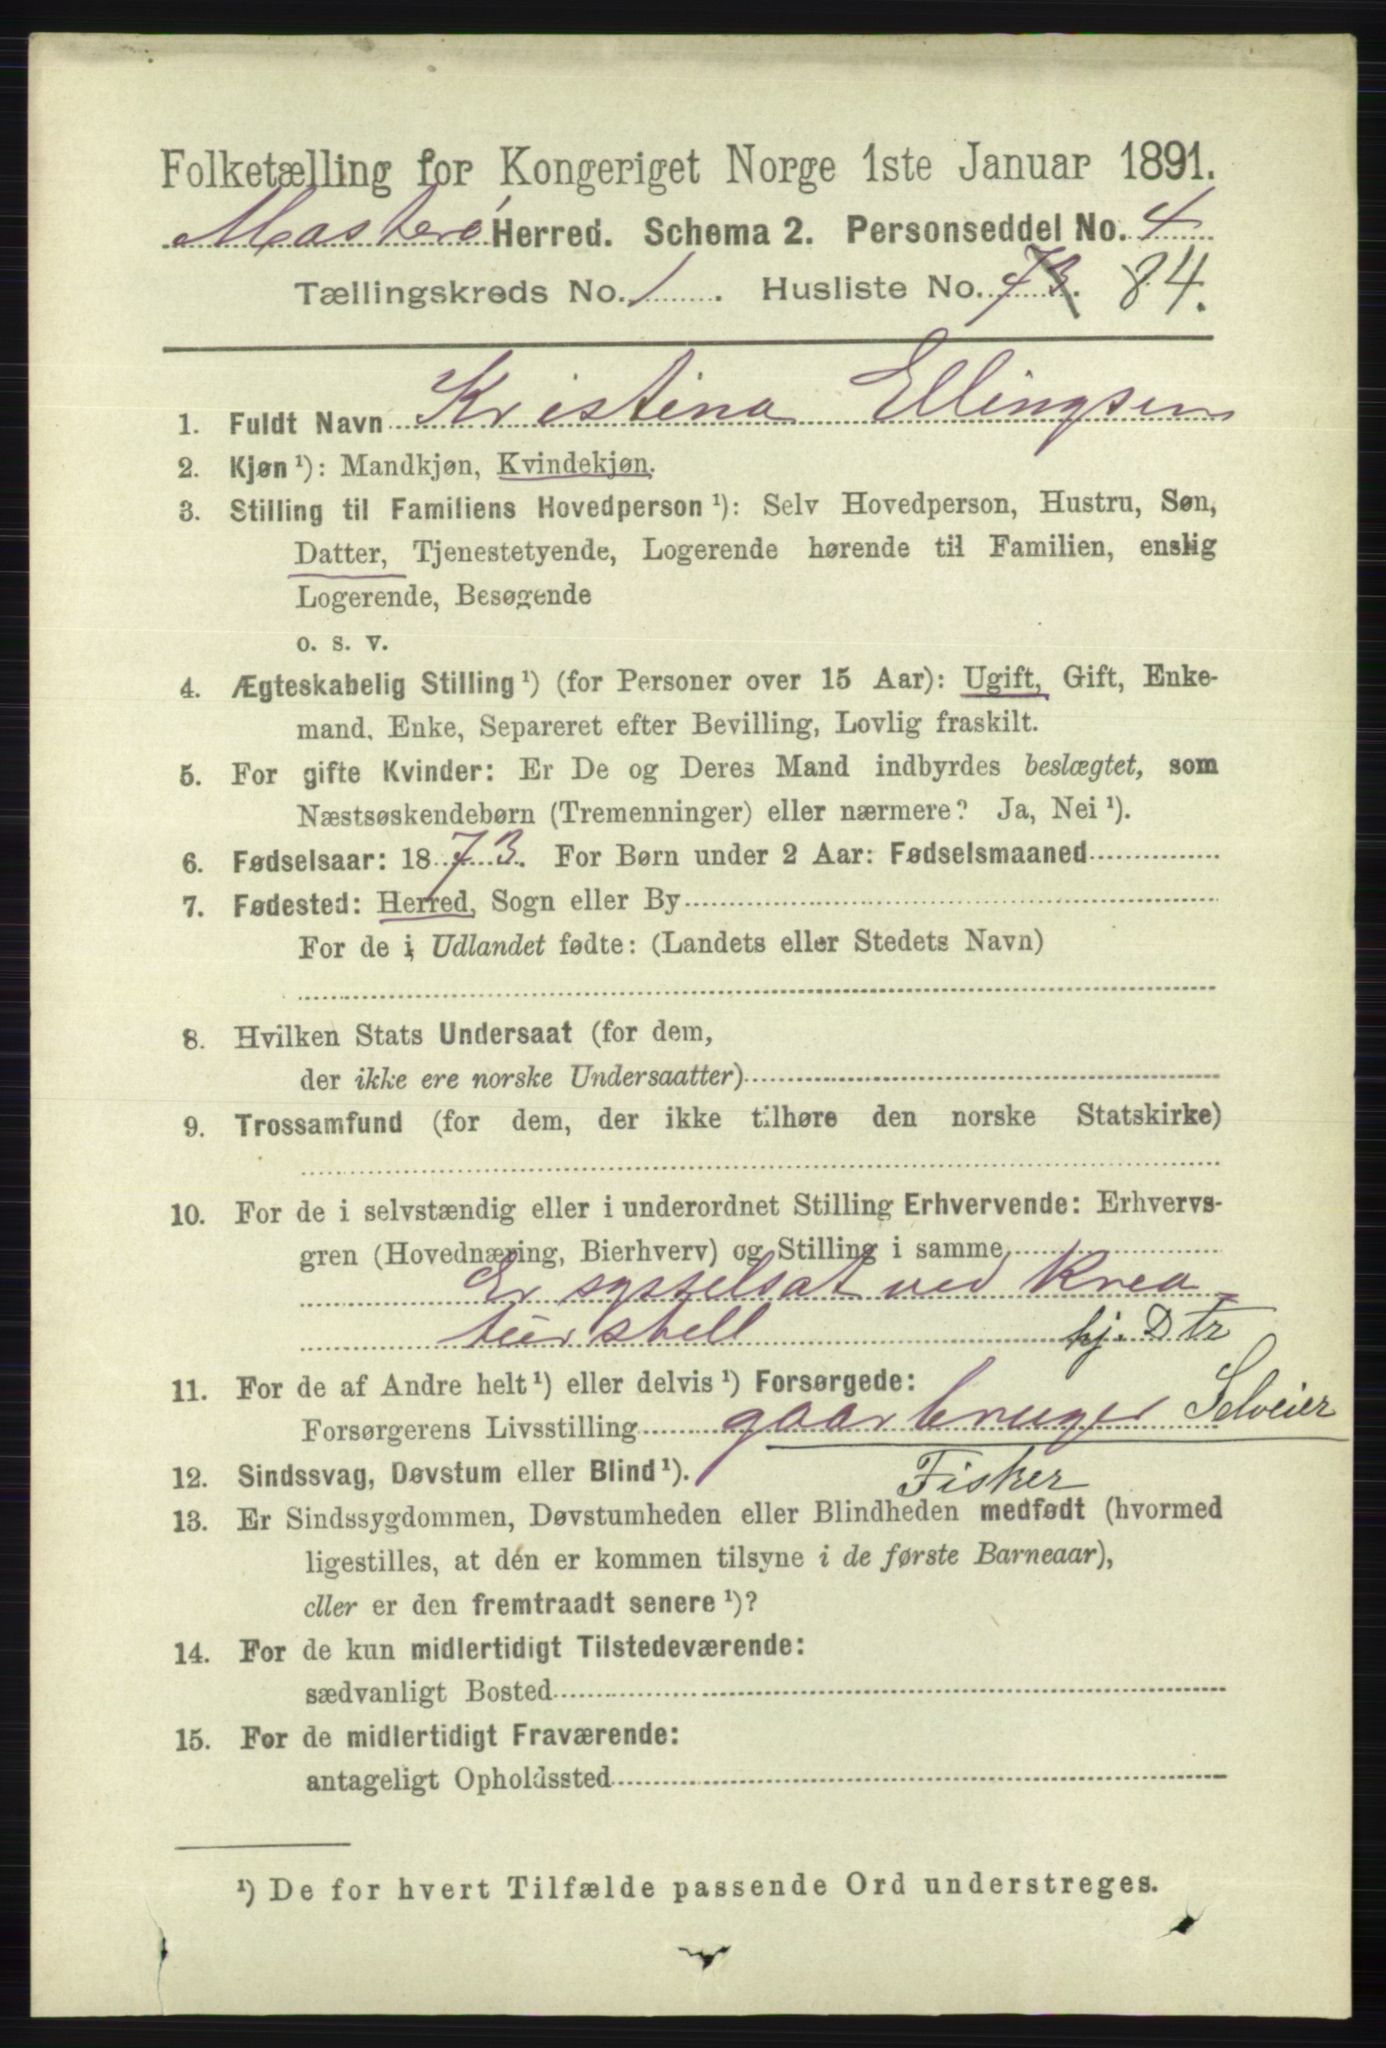 Folketælling for Kongeriget Norge 1ste Januar 1891.
Masterø Herred. Schema 2. Personseddel No. 4
Tællingskreds No. 1. Husliste No. 73. 84.
1. Fuldt Navn Kristina Ellingsen
2. Kjøn ¹): Mandkjøn, Kvindekjøn.
3. Stilling til Familiens Hovedperson ¹): Selv Hovedperson, Hustru, Søn,
Datter, Tjenestetyende, Logerende hørende til Familien, enslig
Logerende, Besøgende
o. s. v.
4. Ægteskabelig Stilling ¹) (for Personer over 15 Aar): Ugift, Gift, Enke-
mand, Enke, Separeret efter Bevilling, Lovlig fraskilt.
5. For gifte Kvinder: Er De og Deres Mand indbyrdes beslægtet, som
Næstsøskendebørn (Tremenninger) eller nærmere? Ja, Nei ¹).
6. Fødselsaar: 1873. For Børn under 2 Aar: Fødselsmaaned
7. Fødested: Herred, Sogn eller By
For de i Udlandet fødte: (Landets eller Stedets Navn)
8. Hvilken Stats Undersaat (for dem,
der ikke ere norske Undersaatter)
9. Trossamfund (for dem, der ikke tilhøre den norske Statskirke)
10. For de i selvstændig eller i underordnet Stilling Erhvervende: Erhvervs-
gren (Hovednæring, Bierhverv) og Stilling i samme
Er sysselsat ved Krea-
turstell hj. Dtr
11. For de af Andre helt ¹) eller delvis ¹) Forsørgede:
Forsørgerens Livsstilling gaarbruger Selveier
12. Sindssvag, Døvstum eller Blind ¹). Fisker
13. Er Sindssygdommen, Døvstumheden eller Blindheden medfødt (hvormed
ligestilles, at den er kommen tilsyne i de første Barneaar),
eller er den fremtraadt senere ¹)?
14. For de kun midlertidigt Tilstedeværende:
sædvanligt Bosted
15. For de midlertidigt Fraværende:
antageligt Opholdssted
¹) De for hvert Tilfælde passende Ord understreges.